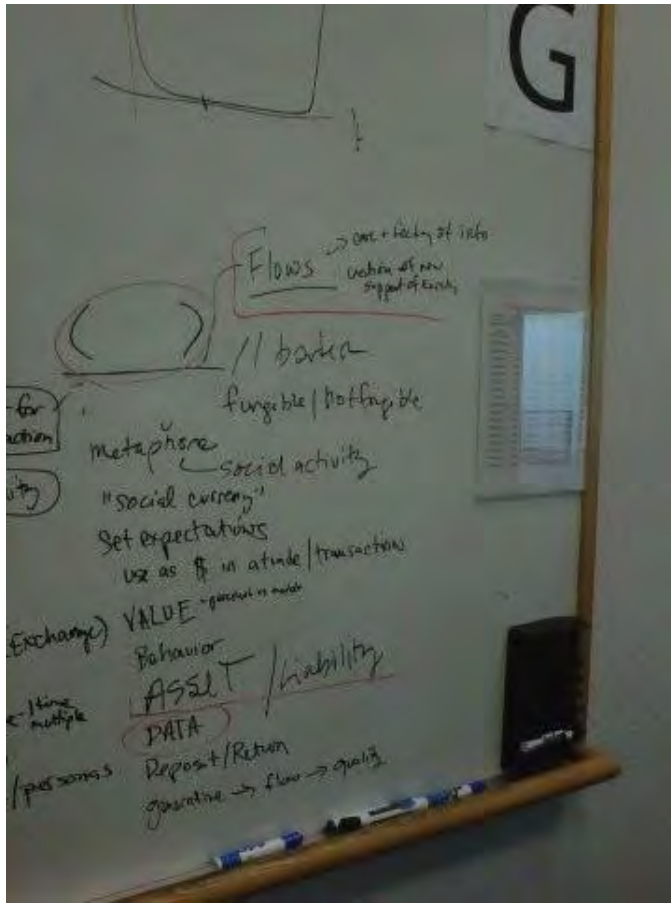 G
t
Flows
→ care + feeding of info
creation of new
support of
// barter
fungible / not fungible
for
action
metaphors
social activity
"social currency"
Set expectations
use as $ in a trade / transaction
(Exchange) VALUE
Behavior
ASSET / Liability
time
multiple
DATA
/personas
Deposit / Return
generative → flow → quality